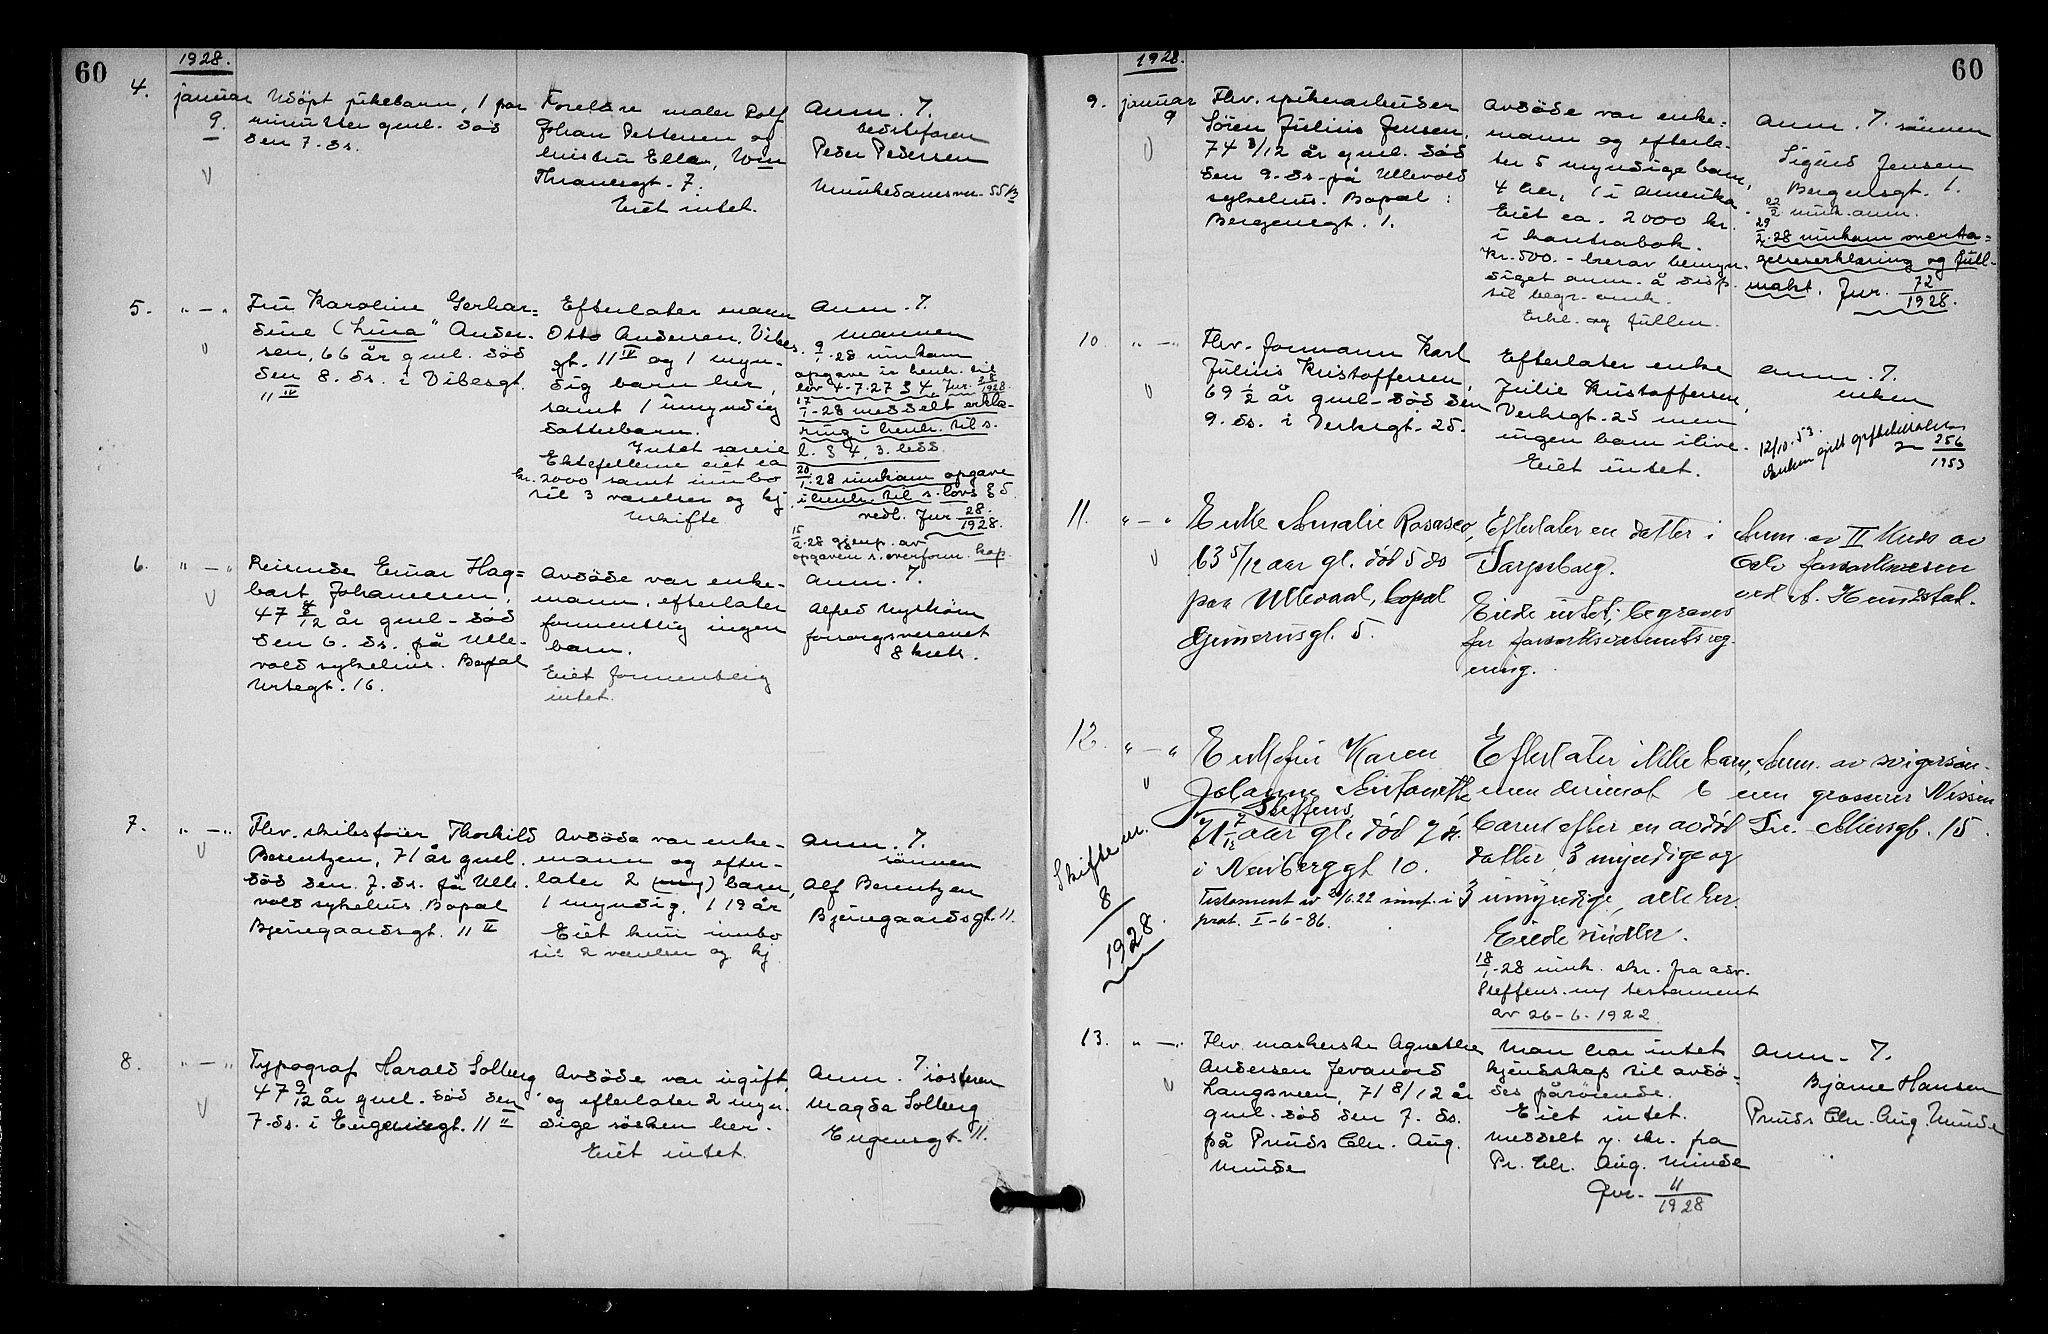 60
1928.
4.
januar
9.
Udöpt pikebarn, 1 par
minutter gml. död
den 7. ds.
Foreldre maler Rolf
Johan Pettersen og
hustru Ella,
Thranesgt. 7.
Eiet intet.
Anm. 7.
bedstefaren
Peder Pedersen
Munkedamsvn. 55 B
5.
" — "
Fru Karoline Gerhar=
dine (Lina" Ander-
sen, 66 år gml. död
den 8. ds. i Vibesgt.
11 IV
Efterlater mann
Otto Andersen, Vibes
gt. 11 IV og 1 myn-
dig barn her,
samt 1 umyndig
datterbarn.
Intet særeie
Ektefellerne eiet ca
kr. 2000 samt innbo
til 3 værelser og kj.
Uskifte
Anm. 7.
mannen
9/1.28 innkom
opgave i henh. til
lov 4-7-27 § 4. Jur. 28/1928.
17/1-28 meddelt erklæ-
ring i henh. til s.
l. § 4, 3. ledd.
20/1.28 innkom opgave
i henh. til s. lovs § 5.
vedl. Jur 28/1928.
15/2.28 gjenp. av
opgaven s. overform. kap.
6.
" — "
Reisende Einar Hag=
bart Johannesen,
47 8/12 år gml. död
den 6. ds. på Ulle-
vold sykehus. Bopæl
Urtegt. 16.
Avdöde var enke-
mann, efterlater
formentlig ingen
barn.
Eiet formentlig
intet.
Anm. 7.
Alfred Nyström
forsorgsvesenet
8 krets.
7.
" — "
Fhv. skibsförer Thorkild
Berentzen, 71 år gml.
död den 7. ds. på Ulle-
vold sykehus. Bopæl
Bjerregaardsgt. 11 II
Avdöde var enke-
mann og efter-
later 2 (myn) barn,
1 myndig, 1 19 år
Eiet kun innbo
til 2 værelser og kj
Anm. 7.
sönnen
Alf Berentzen
Bjerregaardsgt. 11.
8.
" — "
Typograf Harald Solberg
47 9/12 år gml. död den
7. ds. i Eugeniesgt. 11 II
Avdöde var ugift
og efterlater 2 myn-
dige sösken her.
Eiet intet.
Anm. 7.
sösteren
Magda Solberg
Eugensgt. 11.
1928.
60
9.
januar
9
Fhv. spikerarbeider
Sören Julius Jensen,
74 3/12 år gml. död
den 9. ds. på Ullevold
sykehus. Bopæl:
Bergensgt. 1.
Avdöde var enke=
mann og efterla-
ter 5 myndige barn,
4 her, 1 i Amerika.
Eiet ca. 2000 kr.
i kontrabok.
Kr. 500.- herav bemyn-
diget anm. å disp.
til begr. omk.
Erkl. og fullm.
Anm. 7. sönnen
Sigurd Jensen
Bergensgt. 1.
22/2 innk. anm.
29/2.28 innkom overta=
gelseserklæring og full-
makt. Jur. 72/1928.
10.
" — "
Fhv. formann Karl
Julius Kristoffersen,
69 1/2 år gml. död den
9. ds. i Verksgt. 25.
Efterlater enke
Julie Kristoffersen,
Verksgt. 25 men
ingen barn ilive.
Eiet intet.
Anm. 7.
enken
12/10.53.
Enken gitt skiftetillatelse
Jr 256/1953
11.
" — "
Enke Amalie Rosasco,
63 5/12 aar gl. död 5 ds
paa Ullevaal, bopæl
Gjörnerusgt. 5.
Efterlater en datter i
Sarpsborg.
Eiede intet; begraves
for forsorksvæsenets reg-
ning.
Anm. av II Kreds av
Oslo forsorksvæsen
ved A. Hundstad.
12.
" — "
Enkefru Karen
Johanne Antonette
Steffens
71 2/12 aar gl. död 7 ds.
i Neuberggt 10.
Testament av 26/6.22 innf. i
prot. I-6-86.
Skifte nr.
8/1928.
Efterlater ikke barn,
men derimot 6
barn efter en avdöd
datter, 3 myndige og
3 umyndige, alle her.
Eiede midler.
18/1.28 innk. skr. fra adv.
Steffens m/ testament
av 26-6-1922.
Anm. av svigersön-
nen grosserer Nissen
Tr. Meiersgt. 15.
13.
" — "
Fhv. maskerske Agnethe
Andersen Jevanord
Langsveen, 71 8/12 år
gml. död den 7. ds.
på Pruds Chr. Aug.
Minde
Man har intet
kjendskap til avdö-
des pårörende.
Eiet intet.
meddelt v. skr. fra
Pr. Chr. Aug. Minde
Jvr. 11/1928
Anm. 7.
Bjarne Hansen
Pruds Chr. Aug. Minde